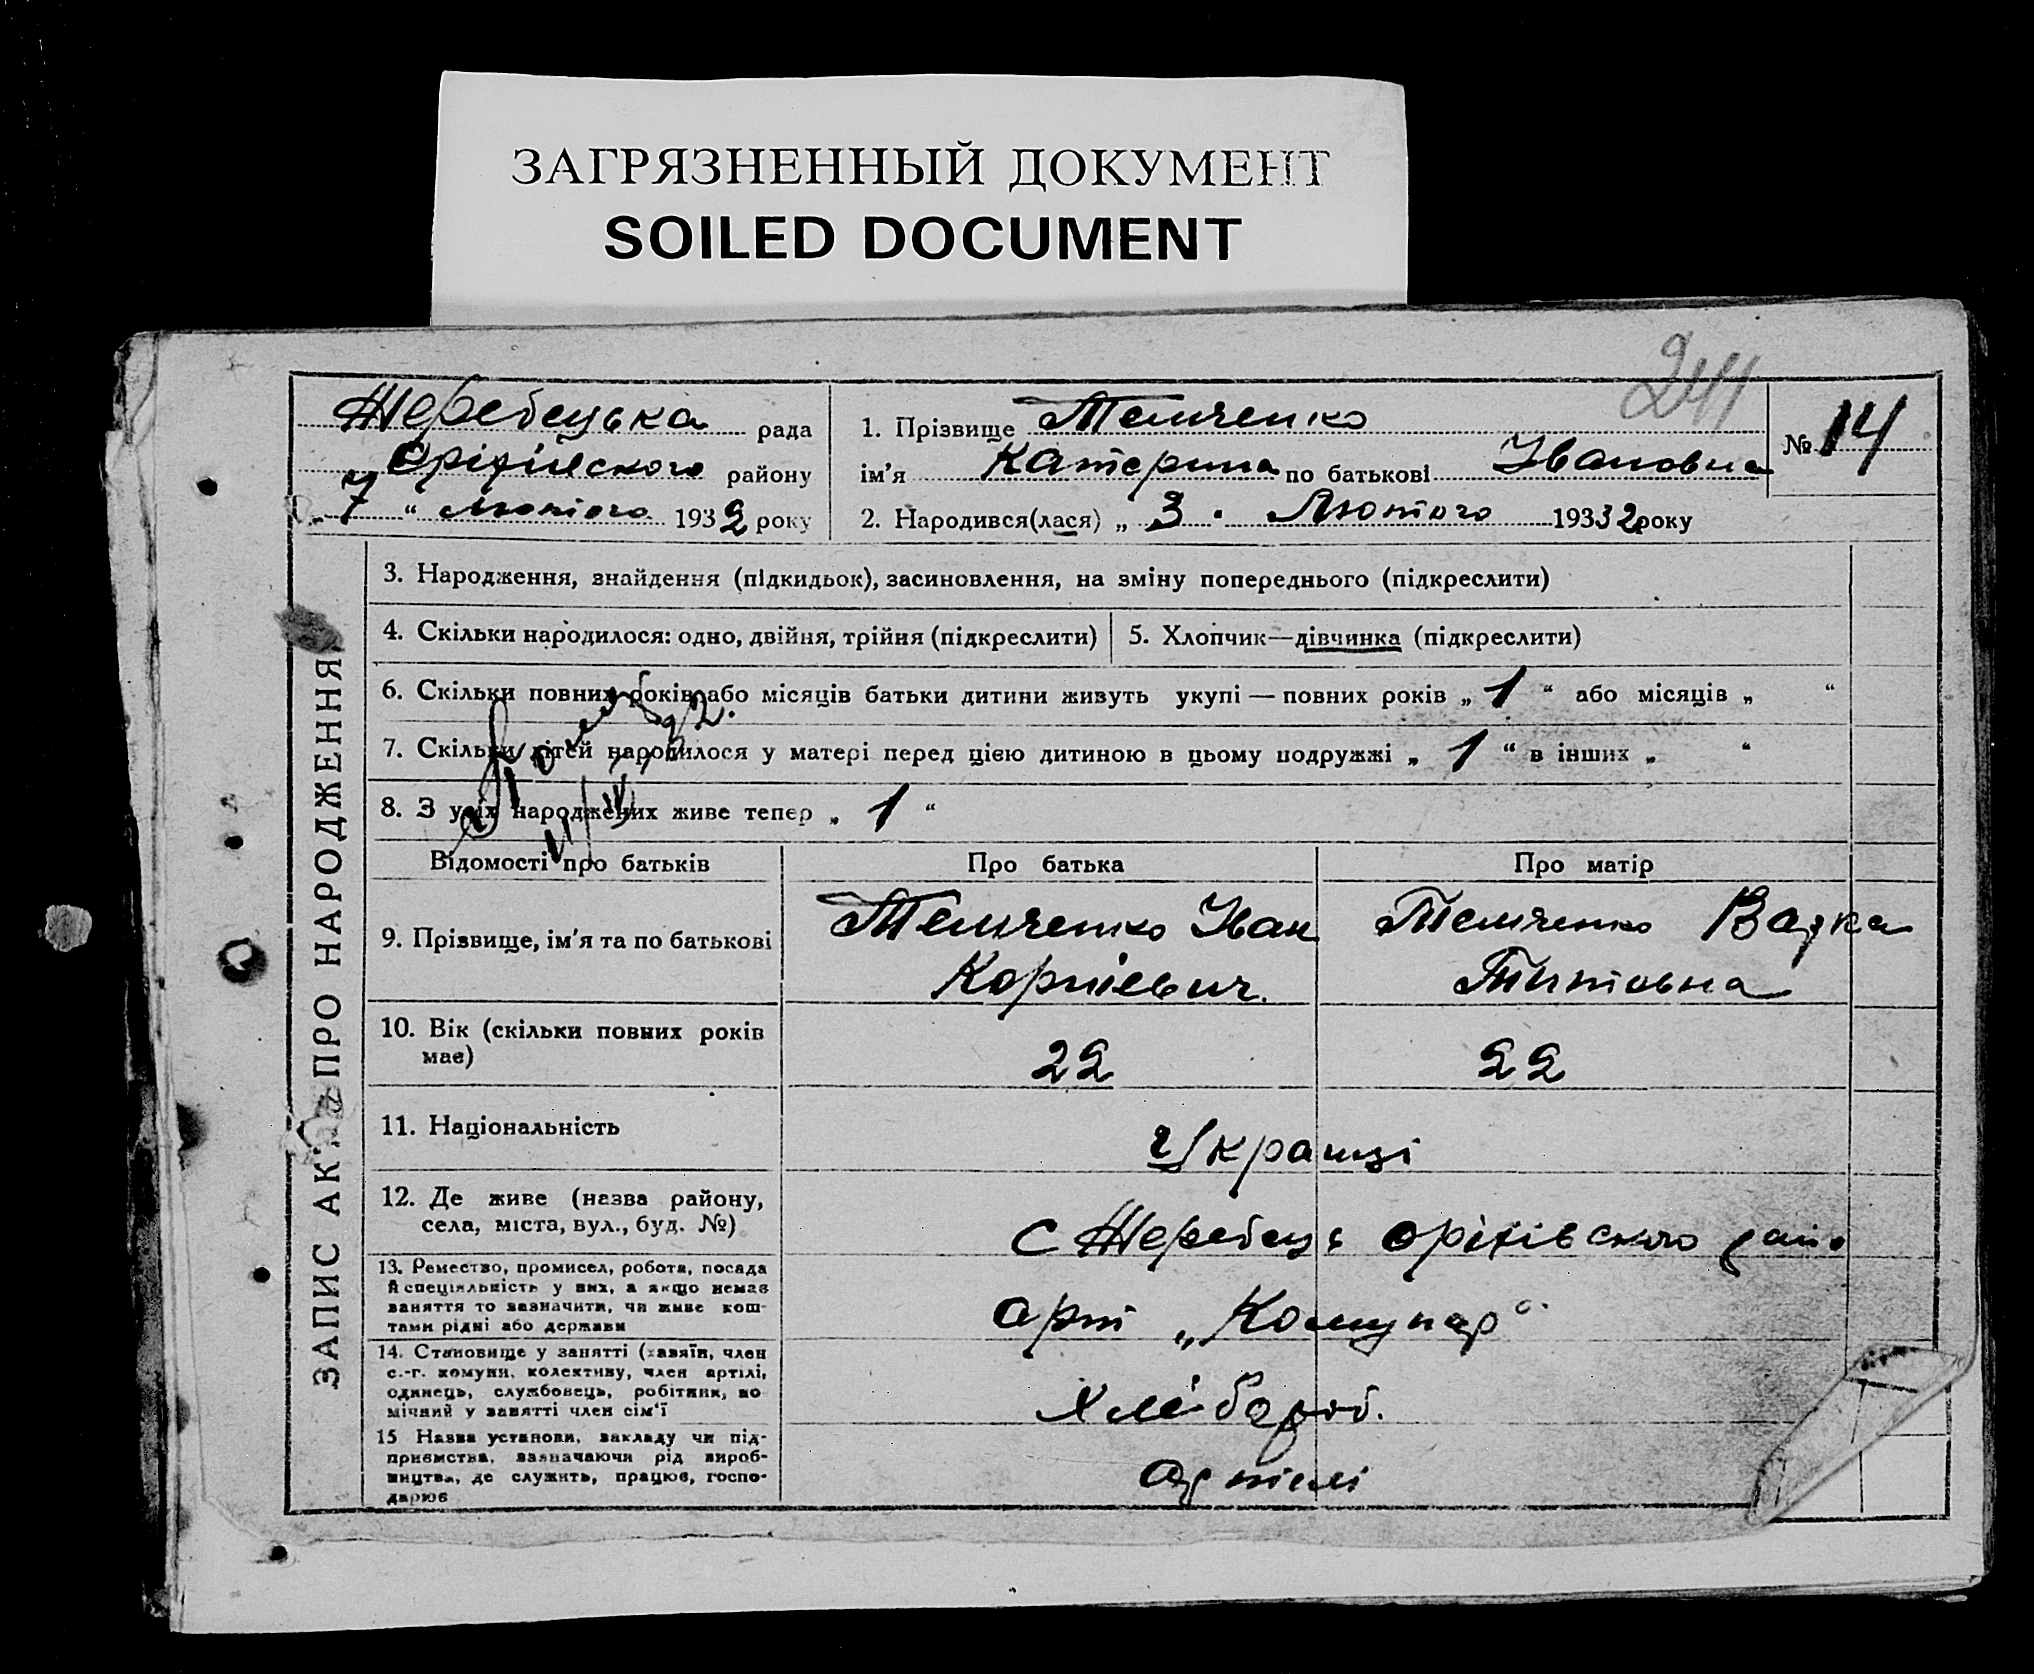 ЗАГРЯЗНЕННЫЙ ДОКУМЕНТ
SOILED DOCUMENT
241
Жеребецька рада
Оріхівського району
„ 7 “ Лютого 1932 року
1. Прізвище Темченко
ім'я Катерина по батькові Івановна
№ 14
2. Народився(лася) „ 3 . Лютого 193 32 року
ЗАПИС АКТ ПРО НАРОДЖЕННЯ
3. Народження, знайдення (підкидьок), засиновлення, на зміну попереднього (підкреслити)
4. Скільки народилося: одно, двійня, трійня (підкреслити)
5. Хлопчик—дівчинка (підкреслити)
6. Скільки повних років або місяців батьки дитини живуть укупі — повних років „ 1 “ або місяців „ “
7. Скільки дітей народилося у матері перед цією дитиною в цьому подружжі „ 1 “ в інших „ “
8. З усіх народжених живе тепер „ 1 “
Відомості про батьків
Про батька
Про матір
9. Прізвище, ім'я та по батькові
Темченко Іван
Корнієвич.
Темченко
Титовна
10. Вік (скільки повних років
має)
22
22
11. Національність
Украінці
12. Де живе (назва району,
села, міста, вул., буд. №)
с Жеребець Оріхівського рай.
13. Ремество, промисел, робота, посада
й спеціяльність у них, а якщо немає
заняття то зазначити, чи живе кош-
тами рідні або держави
Арт „Комунар“
14. Становище у занятті (хазяїн, член
с.-г. комуни, колективу, член артілі,
одинець, службовець, робітник, по
мічний у занятті член сім'ї
Хлібороб.
15 Назва установи, закладу чи під-
приємства, зазначаючи рід вироб-
ництва, де служить, працює, госпо-
дарює
Артілі